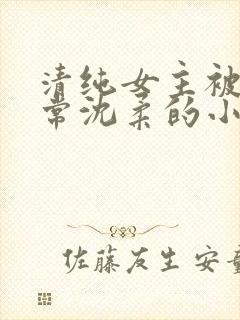 清纯女主被
常沈柔的小
佐藤友生 安童